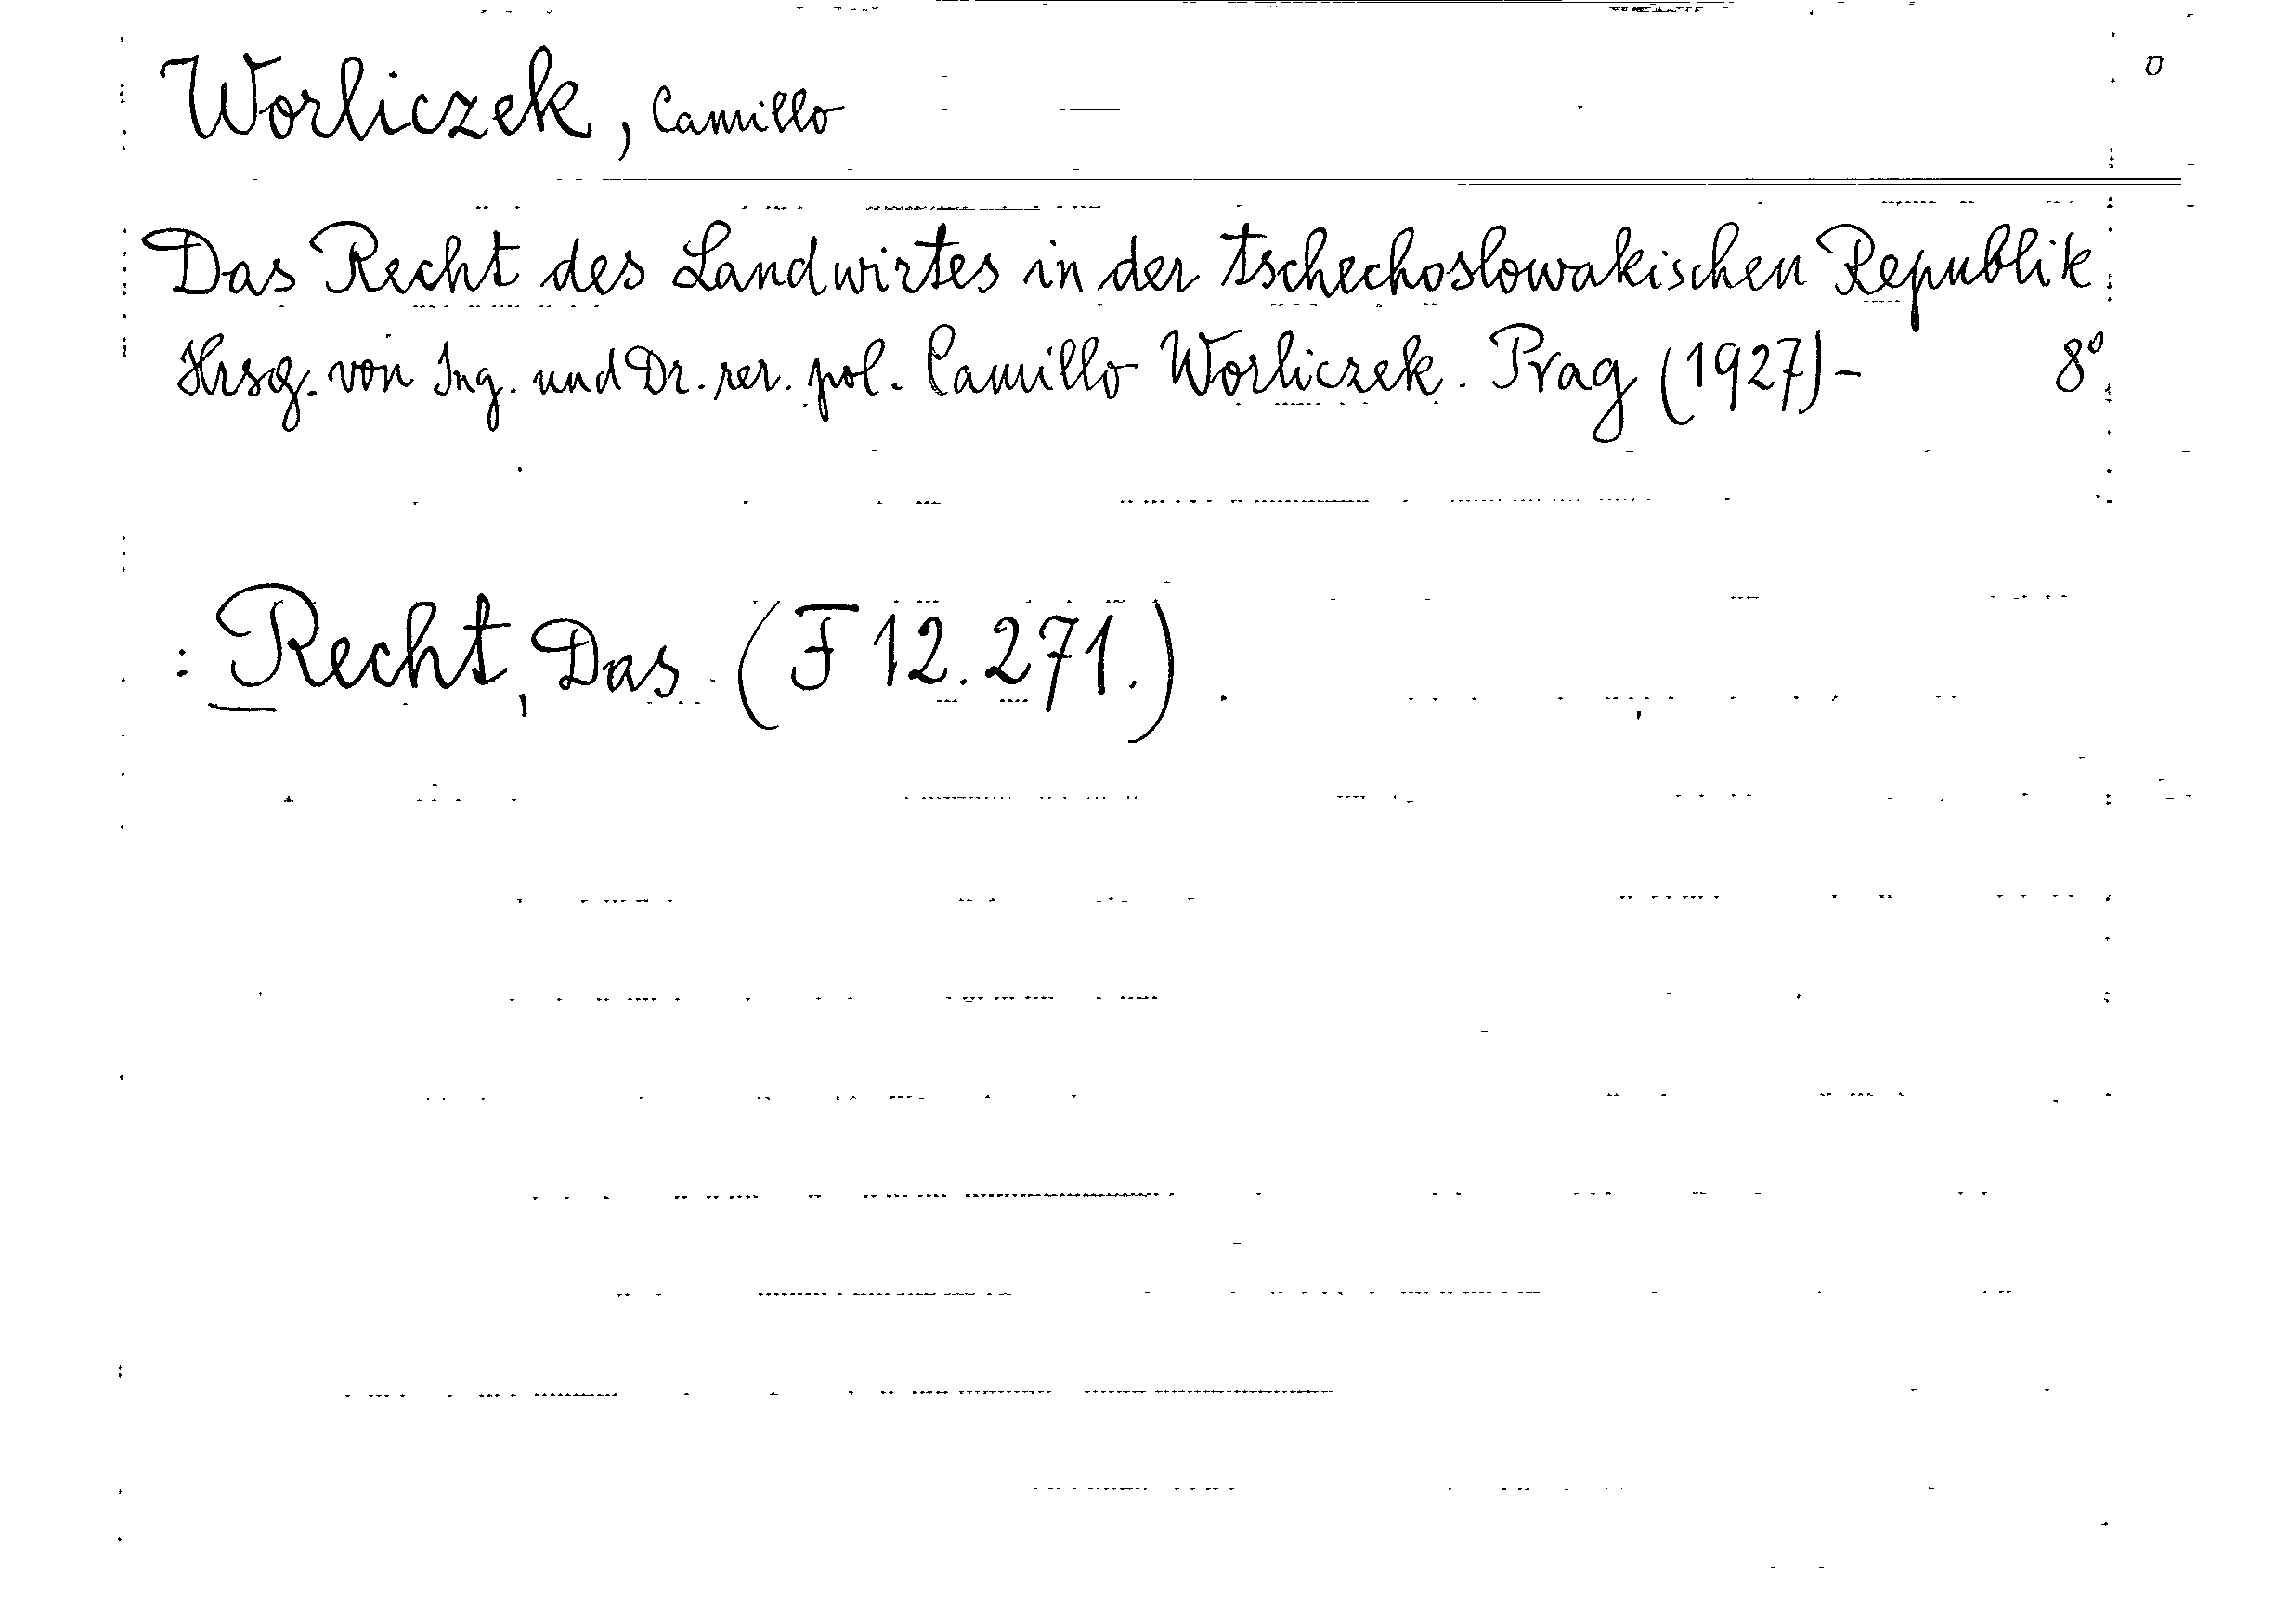 Worliczek, Camillo
Das Recht des Landwirtes in der tschechoslowakischen Republik
Hrsg. von Ing. und Dr. rer. pol. Camillo Worliczek. Prag (1927)- 8°
: Recht, Das (F 12.271.)